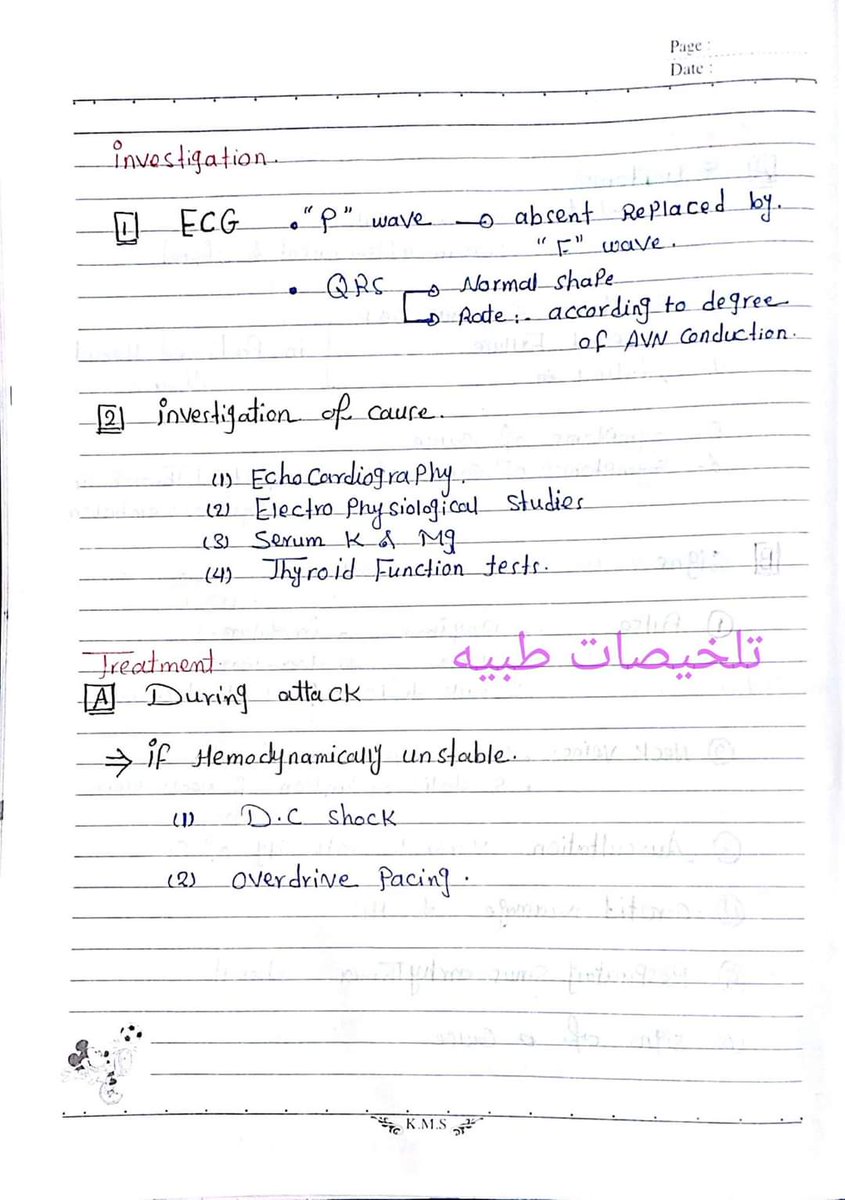 Page :
Date :
investigation.
1 ECG • "P" wave → absent Replaced by.
"F" wave.
• QRS → Normal shape
→ Rate:- according to degree
of AVN conduction.
2 investigation of cause.
(1) EchoCardiography.
(2) Electro Physiological studies
(3) Serum K & Mg
(4) Thyroid Function tests.
تلخيصات طبيه
Treatment
A During attack
⇒ if Hemodynamically unstable.
(1) D.C shock
(2) overdrive Pacing.
K.M.S